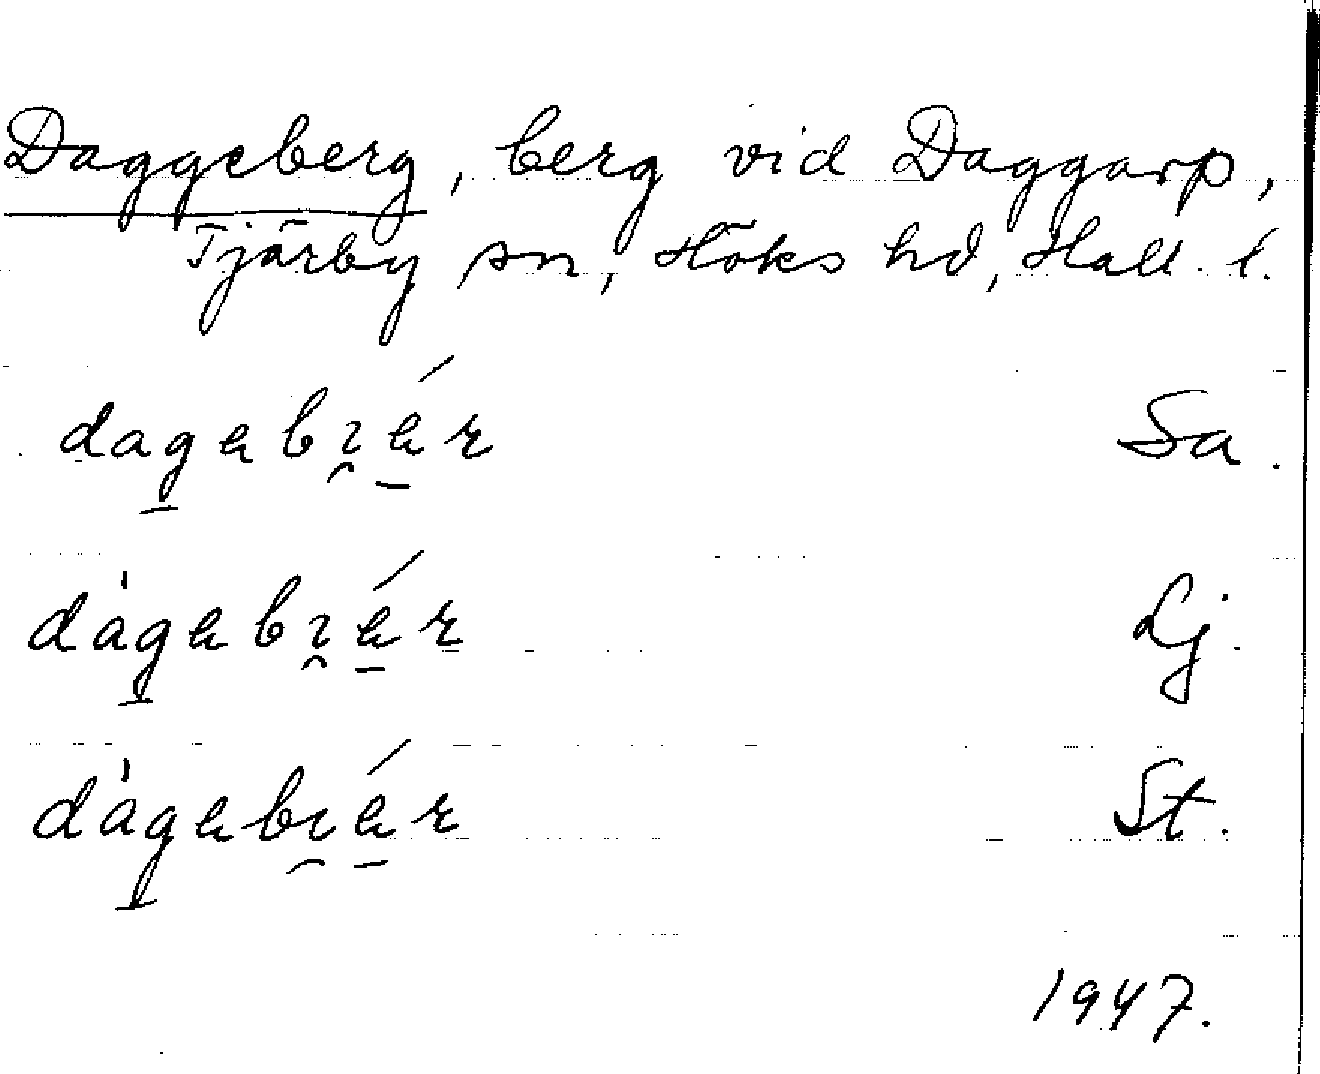 Daggeberg, berg vid Daggarp,
Tjärby sn, Höks hd, Hall. l.
dagebɪér Sa.
dágebɪér Lj.
dágebɪér St.
1947.